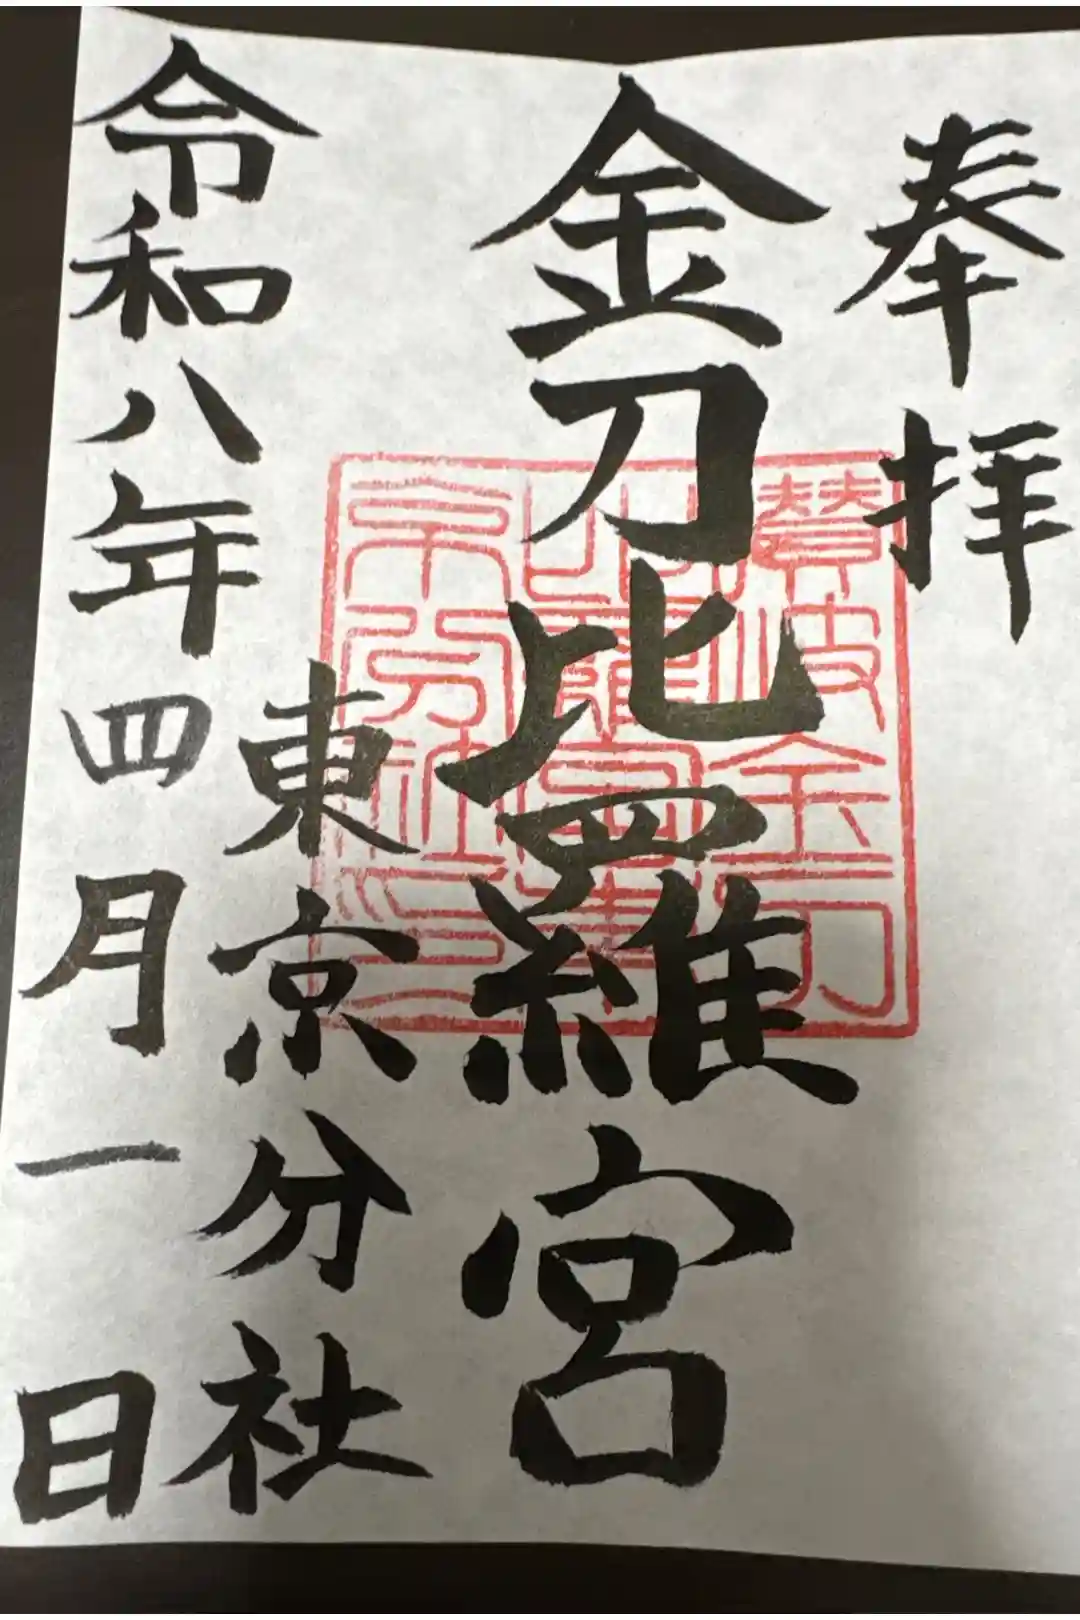 奉拝
金刀比羅宮
東京分社
令和八年四月一日
讃岐金刀
比羅宮東
京分社印